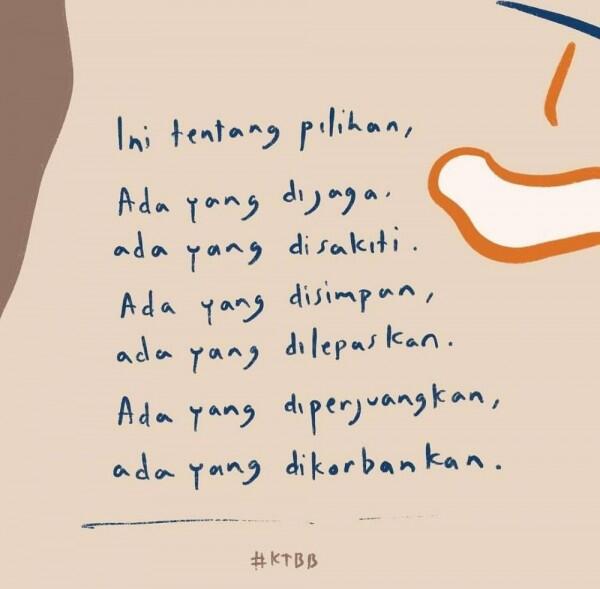 Ini tentang pilihan,
Ada yang dijaga.
ada yang disakiti.
Ada yang disimpan,
ada yang dilepaskan.
Ada yang diperjuangkan,
ada yang dikorbankan.
#KTBB